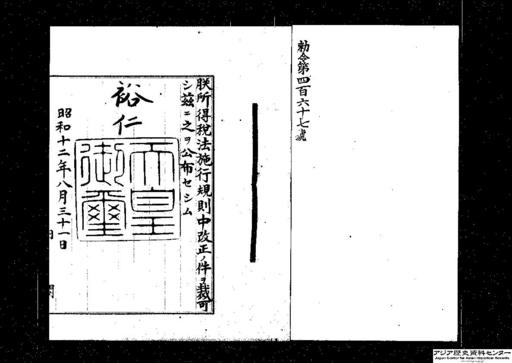 勅令第四百六十七號
朕所得税法施行規則中改正ノ件ヲ裁可
シ茲ニ之ヲ公布セシム
裕仁
天皇
御璽
昭和十二年八月三十一日
アジア歴史資料センター
Japan Center for Asian Historical Records